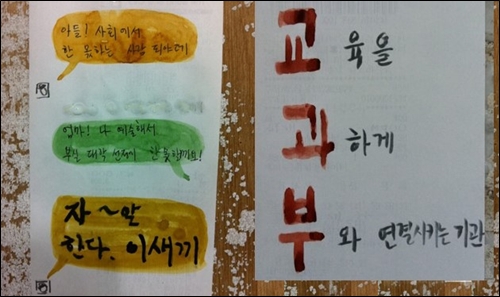 아들! 사회에서
한 몫하는 사람 되야 돼
엄마! 나 예술해서
부실 대학 선정에 한 몫 했어요!
자~알
한다. 이새끼
교육을
과하게
부와 연결시키는 기관